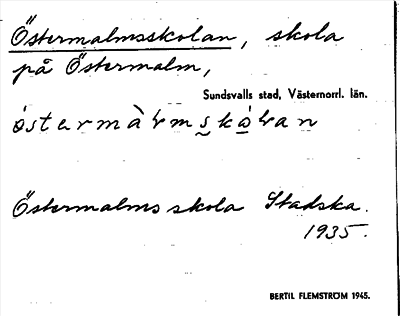 Östermalmsskolan, skola
på Östermalm,
Sundsvalls stad, Västernorrl. län.
östarmàlmskòlan
Östermalms skola Stadska.
1935.
BERTIL FLEMSTRÖM 1945.